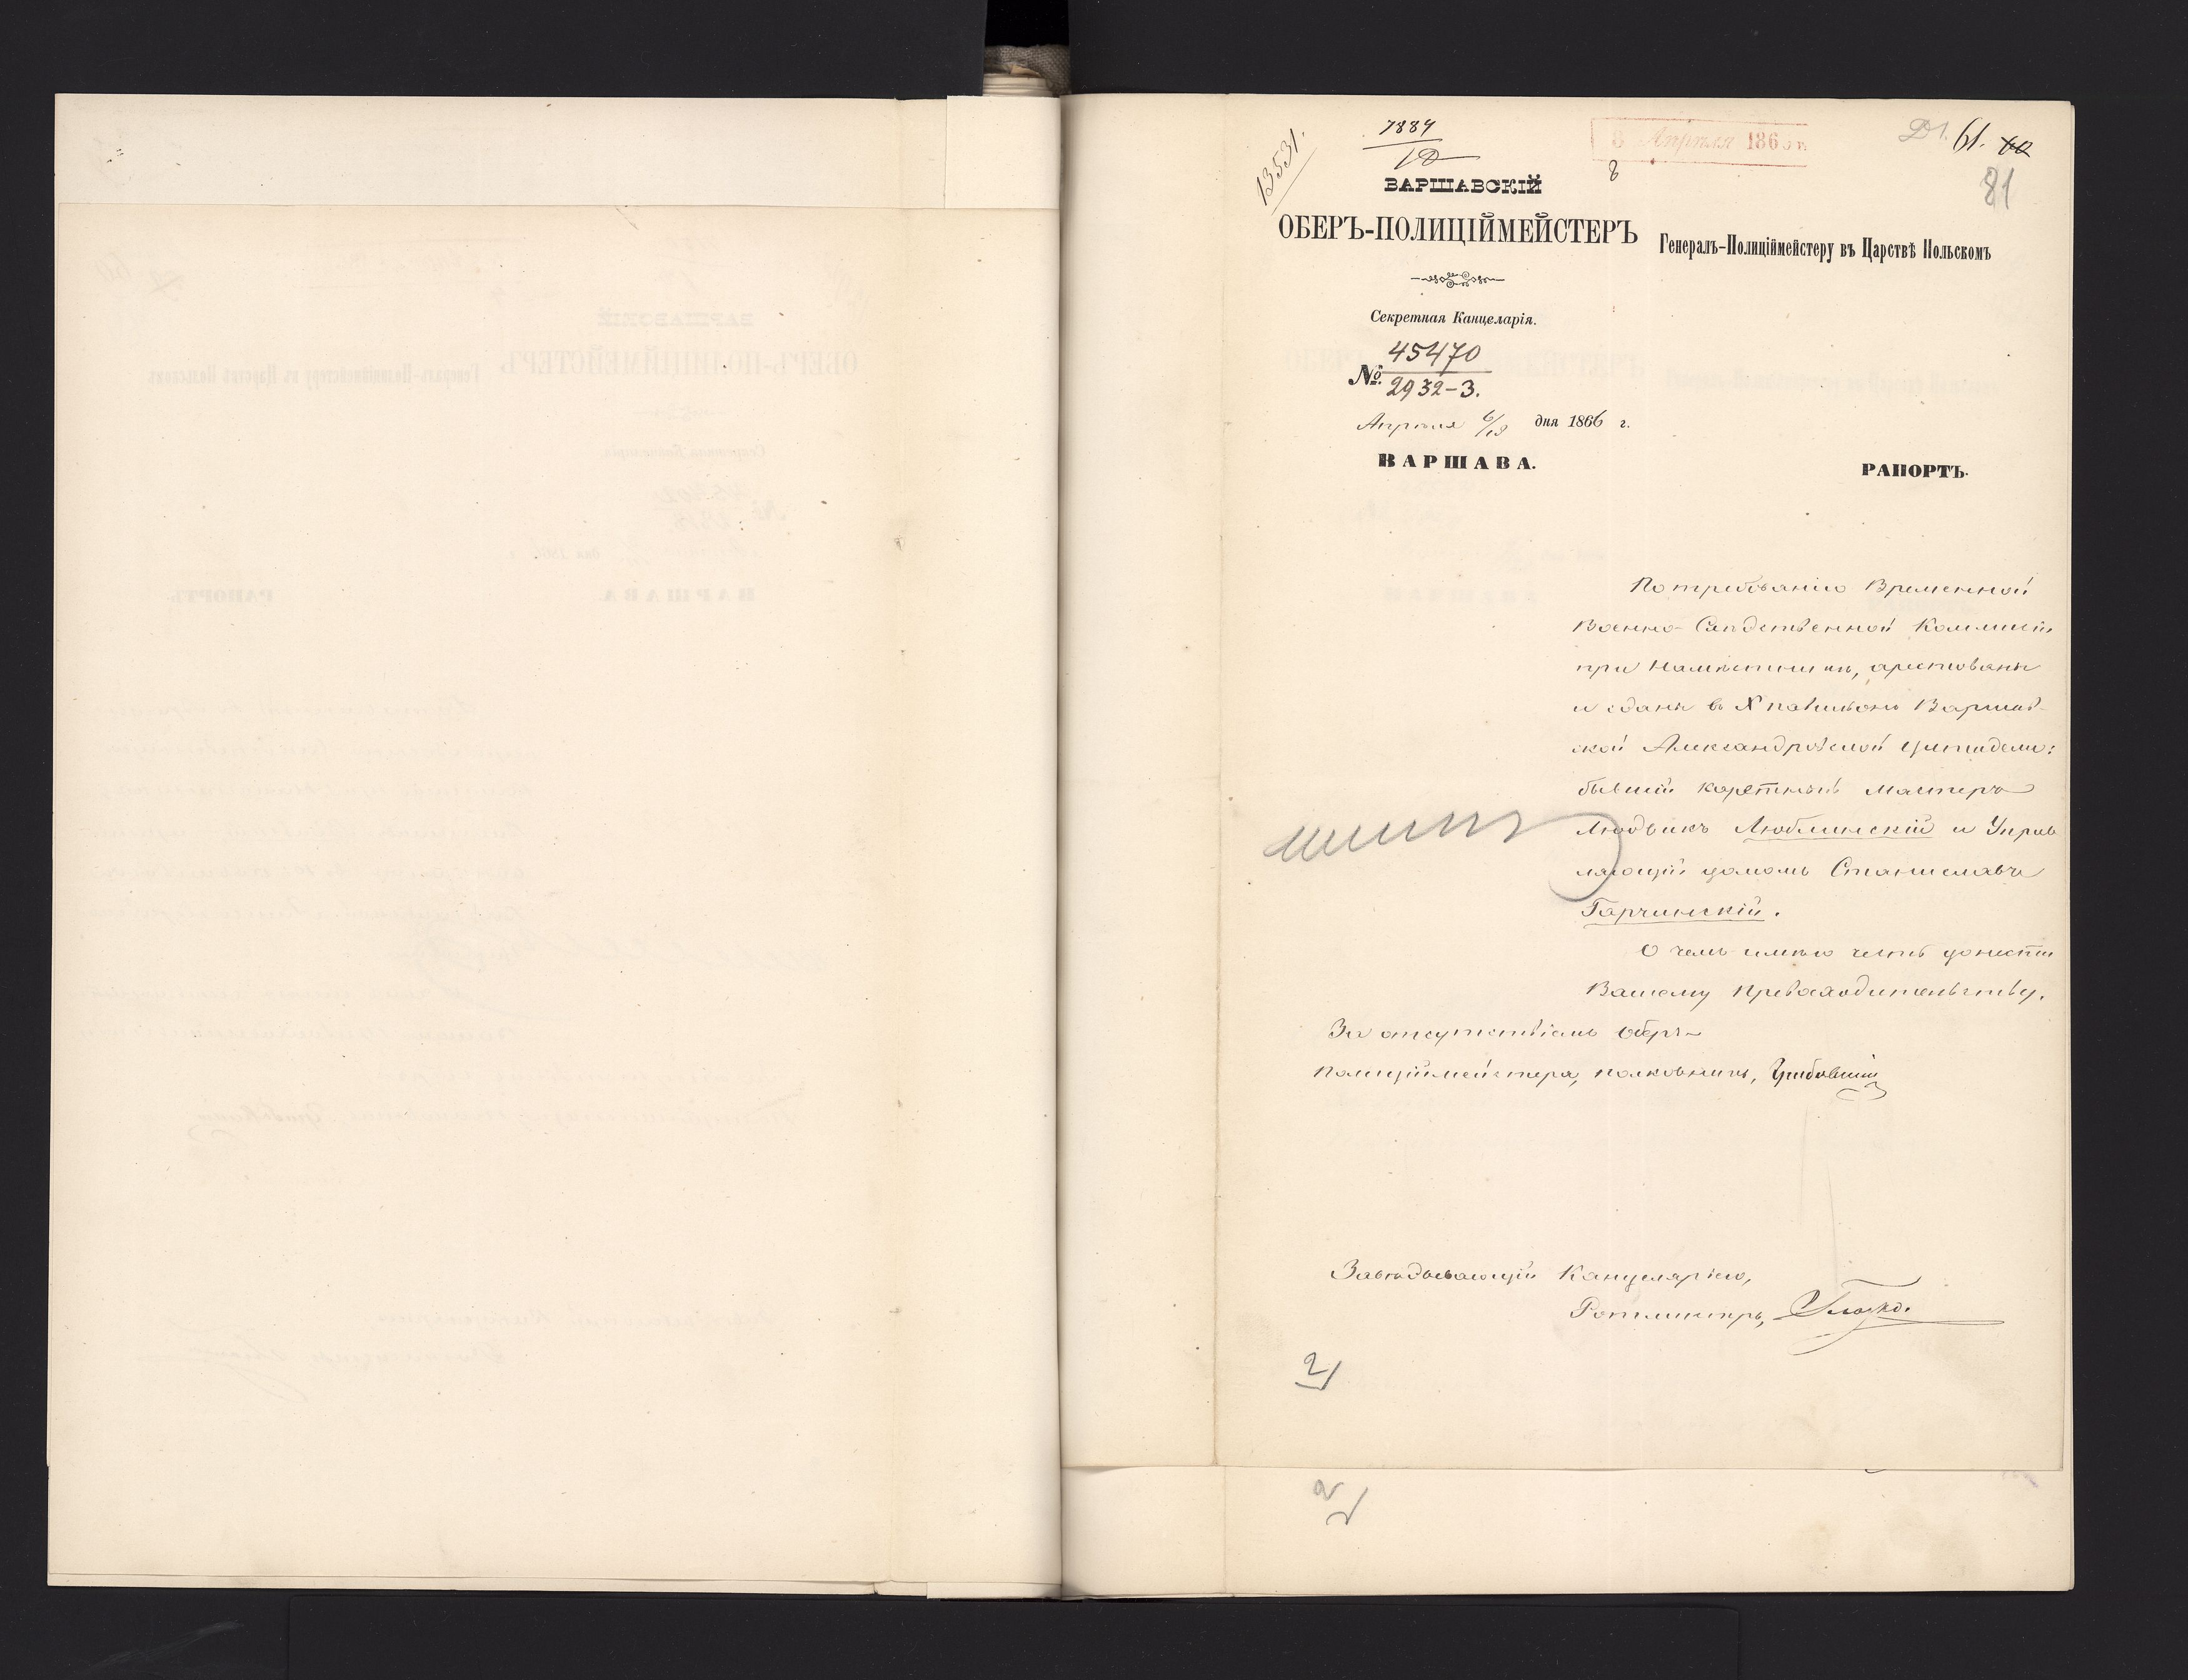 13531.
7884
10
8 Апрѣля 1866 г.
8
61. 60
81
ВАРШАВСКІЙ
ОБЕРЪ-ПОЛИЦІЙМЕЙСТЕРЪ
Генералъ-Полиціймейстеру въ Царствѣ Польскомъ
Секретная Канцелярія.
45470
№ 2932-3.
Апрѣля 6/18 дня 1866 г.
ВАРШАВА.
РАПОРТЪ.
По требованію Временной
Военно-Слѣдственной Коммисіи
при Намѣстникѣ, арестованы
и сданы въ X павильонъ Варшав-
ской Александровской цитадели:
бывшій каретный мастеръ
Людвикъ Люблинскій и Управ
ляющій домомъ Станиславъ
Гарчинскій.
О чемъ имѣю честь донести
Вашему Превосходительству.
За отсутствіемъ Оберъ-
Полиціймейстера, полковникъ, Грибовскій
Завѣдывающій Канцеляріею,
Ротмистръ,
21